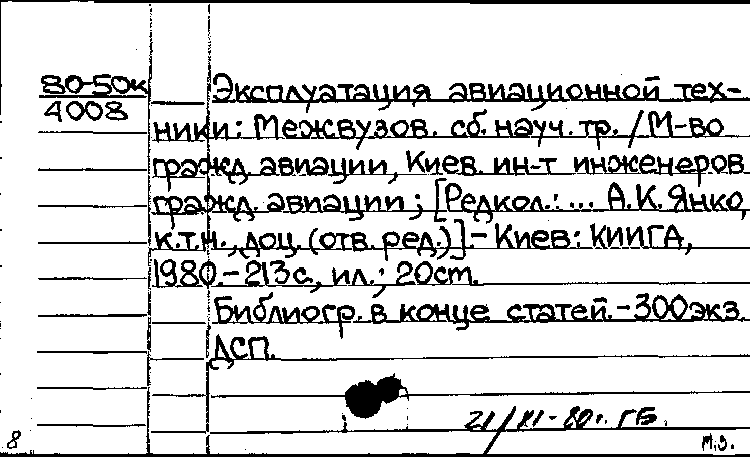 80-50к
4008
Эксплуатация авиационной тех-
ники: Межвузов. сб. науч. тр. / М-во
гражд. авиации, Киев. ин-т инженеров
гражд. авиации; [Редкол.: ... А.К. Янко,
к.т.н., доц. (отв. ред.)].- Киев: КИИГА,
1980.- 213с., ил.; 20см.
Библиогр. в конце статей.- 300экз.
ДСП.
21/XI-80г. ГБ.
8
М.З.